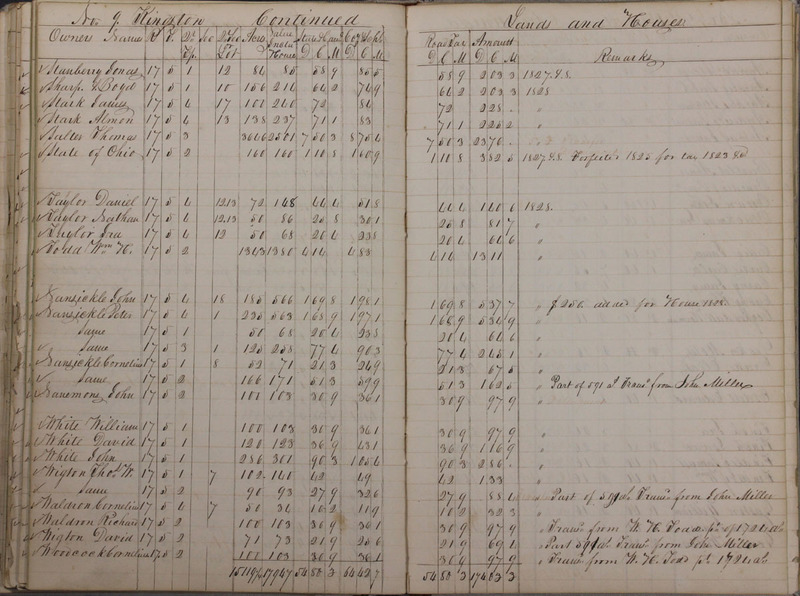 No. 9 Kingston Continued Lands and Houses
Owners Names R. T. Qr. Tp. Sec Lot Acres Value includ. Houses State & Canal D C M Co. & School D C M Road Tax D C M Amount D C M Remarks
Stanberry Jonas 17 5 1 12 84 85 589 2033 1827.8.
Sharp G. Boyd 17 5 1 10 156 214 642 749 642 2033 1828
Stark James 17 5 4 17 100 240 72 84 72 228 "
Stark Almon 17 5 4 13 138 237 711 83 711 2252 "
Salter Thomas 17 5 3 7503 8754 7503 2376 "
State of Ohio 17 5 2 160 160 1108 1609 1108 3825 1827.8. Forfeited 1825 for tax 1823
Taylor Daniel 17 5 4 12.13 72 148 444 518 444 1406 1828.
Taylor Nathan 17 5 4 12.13 50 86 258 301 258 817 "
Taylor Ira 17 5 4 12 50 68 204 238 204 646 "
Todd Wm. H. 17 5 2 1343 1380 414 483 414 1311 "
Vansickle John 17 5 4 18 185 566 1698 1981 1698 5377 " $256 added for House 1828.
Vansickle Peter 17 5 4 1 235 563 1689 1971 1689 5349 "
same 17 5 1 50 68 204 238 204 646 "
same 17 5 3 1 125 258 774 903 774 2451 "
Vansickle Cornelius 17 5 1 8 52 71 213 249 213 675 "
same 17 5 2 166 171 513 599 513 1625 " Part of 591 as. Trans. from John Miller
Vanemong John 17 5 2 100 103 309 361 309 979 "
White William 17 5 1 100 103 309 361 309 979 "
White David 17 5 1 120 123 369 431 369 1169 "
White John 17 5 1 286 301 903 1054 903 286 "
Wigton Thos. W. 17 5 1 7 102 140 42 49 42 133 "
same 17 5 2 90 93 279 326 279 884 " Part of 591 as. Trans. from John Miller
Waldron Cornelius 17 5 4 7 50 34 102 119 102 323 "
Waldron Richard 17 5 2 100 103 309 361 309 979 " Trans. from W. H. Todd pt. of 1724 as.
Wigton David 17 5 2 71 73 219 256 219 694 " Part 591 as. Trans. from John Miller
Woodcock Cornelius 17 5 2 100 103 309 361 309 979 " Trans. from W. H. Todd pt. 1724 as.
17947 5483 6427 5483 17403